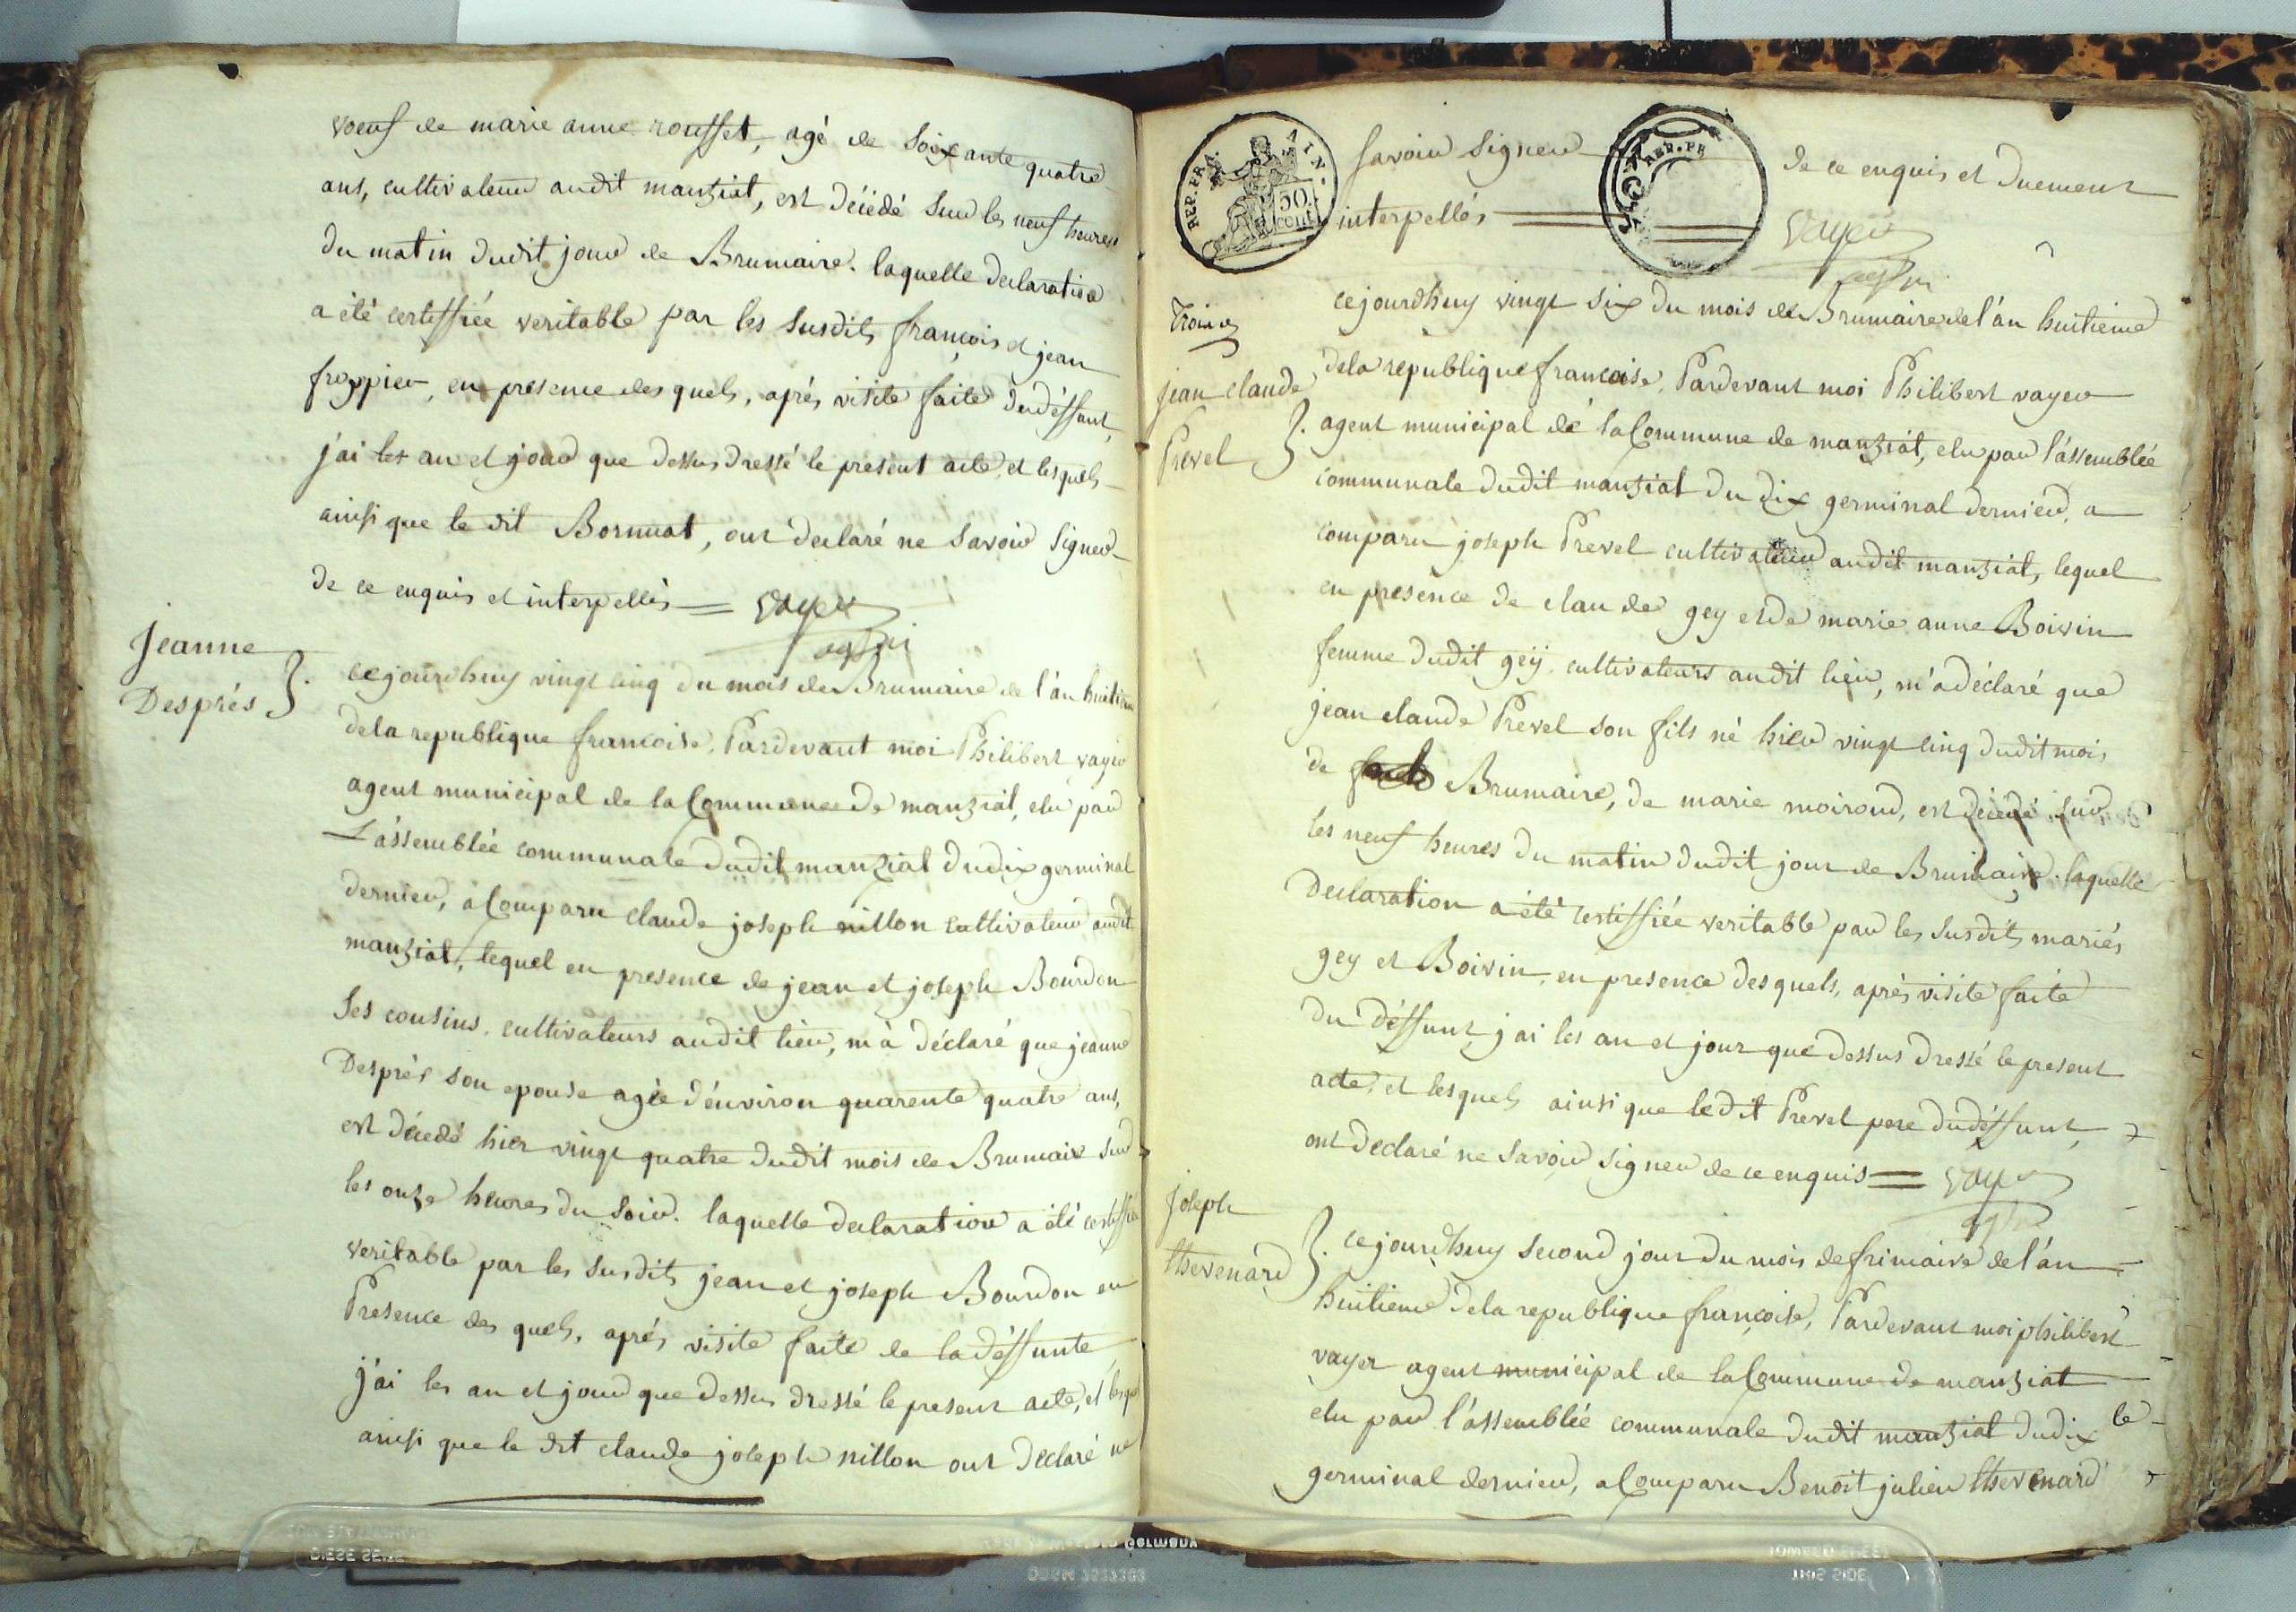 voeuf de marie anne rousset, agé de soixante quatre
ans, cultivateur audit manziat, est décédé sur les neuf heures
du matin dudit jour de Brumaire. laquelle declaration
a été certiffiée veritable par les susdits françois et jean
froppier, en presence des quels, aprés visite faite du déffunt,
j'ai les an et jour que dessus dressé le present acte, et lesquels
ainsi que le dit Bornuat, ont declaré ne savoir signer
de ce enquis et interpellés = vayer
agt mi
Jeanne
Després
cejourdhuy vingt cinq du mois de Brumaire de l'an huitieme
dela republique francoise, Pardevant moi Philibert vayer
agent municipal de la Commune de manziat, elu par
L'ássemblée communale dudit manziat du dix germinal
dernier, a Comparu claude joseph nillon cultivateur audit
manziat, lequel en presence de jean et joseph Bourdon
ses cousins, cultivateurs audit lieu, m'a déclaré que jeanne
Després son epouse agée d'environ quarente quatre ans,
est décedé hier vingt quatre dudit mois de Brumaire sur
les onze heures du soir. laquelle declaration a été certiffiée
veritable par les susdits jean et joseph Bourdon en
Presence des quels, aprés visite faite de la déffunte
j'ai les an et jour que dessus dressé le present acte, et lesqls
ainsi que le dit claude joseph nillon ont déclaré ne
REP. FRA. AIN.
50 cent
REP. FR
savoir signer de ce enquis et duement
interpellés vayer
agt mi
jean claude
Prevel
cejourdhuy vingt six du mois de Brumaire de l'an huitieme
dela republique francoise, Pardevant moi Philibert vayer
agent municipal de la Commune de manziat, elu par l'assemblée
communale dudit manziat du dix germinal dernier, a
comparu joseph Prevel cultivateur audit manziat, lequel
en presence de claude gey et de marie anne Boivin
femme dudit geÿ, cultivateurs audit lieu, m'a déclaré que
jean claude Prevel son fils né hier vingt cinq dudit mois
de Brumaire, de marie moiroud, est décedé sur
les neuf heures du matin dudit jour de Brumaire. laquelle
Declaration a été certiffiée veritable par les susdits mariés
gey et Boivin, en presence desquels, aprés visite faite
du déffunt j'ai les an et jour que dessus dressé le present
acte, et lesquels ainsi que ledit Prevel pere du déffunt,
ont declaré ne savoir signer de ce enquis = vayer
agt mi
joseph
thevenard
cejourdhuy second jour du mois de frimaire de l'an
huitieme dela republique françoise, Pardevant moi philibert
vayer agent municipal de la Commune de manziat
elu par l'assemblée communale dudit manziat du dix le
germinal dernier, a Comparu Benoit julien thevenard